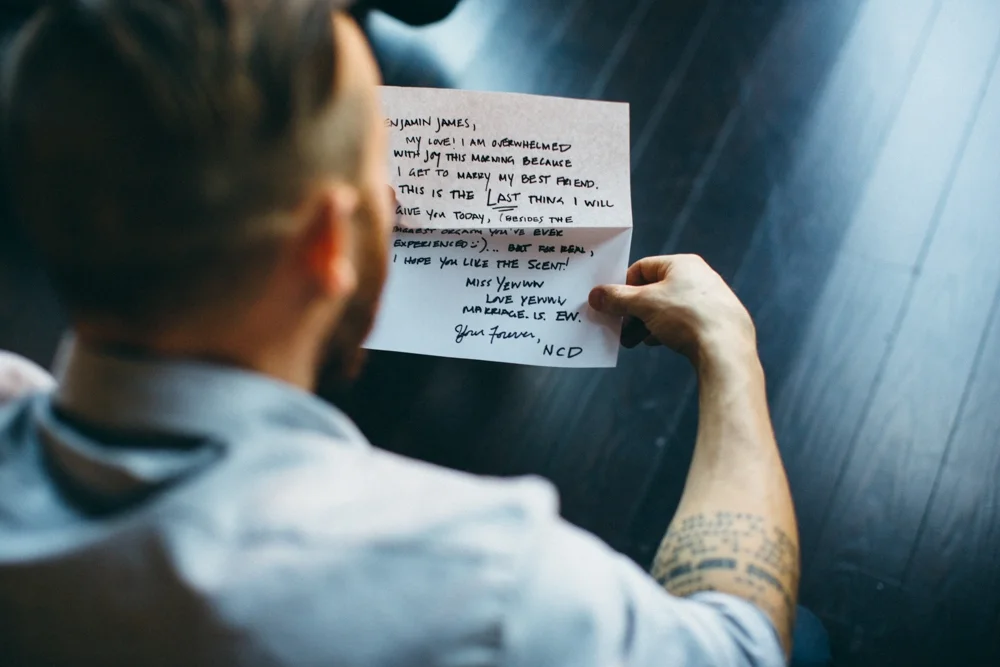 ENJAMIN JAMES,
MY LOVE! I AM OVERWHELMED
WITH JOY THIS MORNING BECAUSE
I GET TO MARRY MY BEST FRIEND.
THIS IS THE LAST THING I WILL
GIVE YOU TODAY, (BESIDES THE
BIGGEST ORGASM YOU'VE EVER
EXPERIENCED :)... BUT FOR REAL,
I HOPE YOU LIKE THE SCENT!
MISS YEWWW
LOVE YEWWW
MARRIAGE. IS. EW.
Your Forever,
NCD